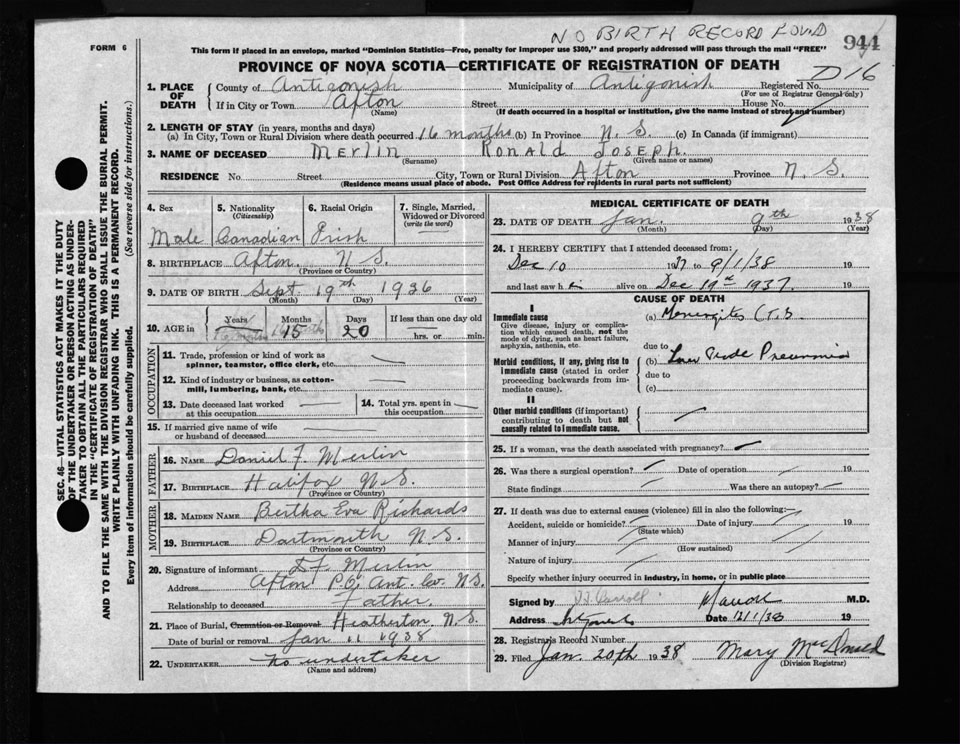 NO BIRTH RECORD FOUND
FORM 6
944
This form if placed in an envelope, marked "Dominion Statistics—Free, penalty for improper use $300," and properly addressed will pass through the mail "FREE"
PROVINCE OF NOVA SCOTIA—CERTIFICATE OF REGISTRATION OF DEATH
D16
1. PLACE OF DEATH County of Antigonish Municipality of Antigonish Registered No.
(For use of Registrar General only)
If in City or Town Afton Street House No.
(Name) (If death occurred in a hospital or institution, give the name instead of street and number)
2. LENGTH OF STAY (in years, months and days)
(a) In City, Town or Rural Division where death occurred 16 months (b) In Province N. S. (c) In Canada (if immigrant)
3. NAME OF DECEASED Merlin Ronald Joseph
(Surname) (Given name or names)
RESIDENCE No. Street City, Town or Rural Division Afton Province N. S.
(Residence means usual place of abode. Post Office Address for residents in rural parts not sufficient)
4. Sex 5. Nationality (Citizenship) 6. Racial Origin 7. Single, Married, Widowed or Divorced (write the word)
Male Canadian Irish
8. BIRTHPLACE Afton. N S.
(Province or Country)
9. DATE OF BIRTH Sept 19th 1936
(Month) (Day) (Year)
10. AGE in Years Months Days If less than one day old
15 20 hrs. or min.
OCCUPATION
11. Trade, profession or kind of work as spinner, teamster, office clerk, etc.
12. Kind of industry or business, as cotton-mill, lumbering, bank, etc.
13. Date deceased last worked at this occupation
14. Total yrs. spent in this occupation
15. If married give name of wife or husband of deceased
FATHER
16. NAME Daniel F. Merlin
17. BIRTHPLACE Halifax N. S.
(Province or Country)
MOTHER
18. MAIDEN NAME Bertha Eva Richards
19. BIRTHPLACE Dartmouth N S.
(Province or Country)
20. Signature of informant D F Merlin
Address Afton P.O. Ant. Co. N S.
Relationship to deceased Father.
21. Place of Burial, Cremation or Removal Heatherton N. S.
Date of burial or removal Jan 11 1938
22. UNDERTAKER No undertaker
(Name and address)
MEDICAL CERTIFICATE OF DEATH
23. DATE OF DEATH Jan. 9th 1938
(Month) (Day) (Year)
24. I HEREBY CERTIFY that I attended deceased from:
Dec 10 1937 to 9/1/38 19
and last saw h alive on Dec 19 1937. 19
CAUSE OF DEATH
I
Immediate cause
Give disease, injury or complication which caused death, not the mode of dying, such as heart failure, asphyxia, asthenia, etc.
(a) Meningites
due to
Morbid conditions, if any, giving rise to immediate cause (stated in order proceeding backwards from immediate cause).
(b)
due to
(c)
II
Other morbid conditions (if important) contributing to death but not causally related to immediate cause.
25. If a woman, was the death associated with pregnancy?
26. Was there a surgical operation? Date of operation 19
State findings Was there an autopsy?
27. If death was due to external causes (violence) fill in also the following:
Accident, suicide or homicide? Date of injury 19
(State which)
Manner of injury
(How sustained)
Nature of injury
Specify whether injury occurred in industry, in home, or in public place
Signed by M.D.
Address Date 12/1/38 19
28. Registrars Record Number
29. Filed Jan. 20th 1938 Mary McDonald
(Division Registrar)
SEC. 46—VITAL STATISTICS ACT MAKES IT THE DUTY
OF THE UNDERTAKER OR PERSON ACTING AS UNDER-
TAKER TO OBTAIN ALL THE PARTICULARS REQUIRED
IN THE "CERTIFICATE OF REGISTRATION OF DEATH"
AND TO FILE THE SAME WITH THE DIVISION REGISTRAR WHO SHALL ISSUE THE BURIAL PERMIT.
WRITE PLAINLY WITH UNFADING INK. THIS IS A PERMANENT RECORD.
Every item of information should be carefully supplied. (See reverse side for instructions.)